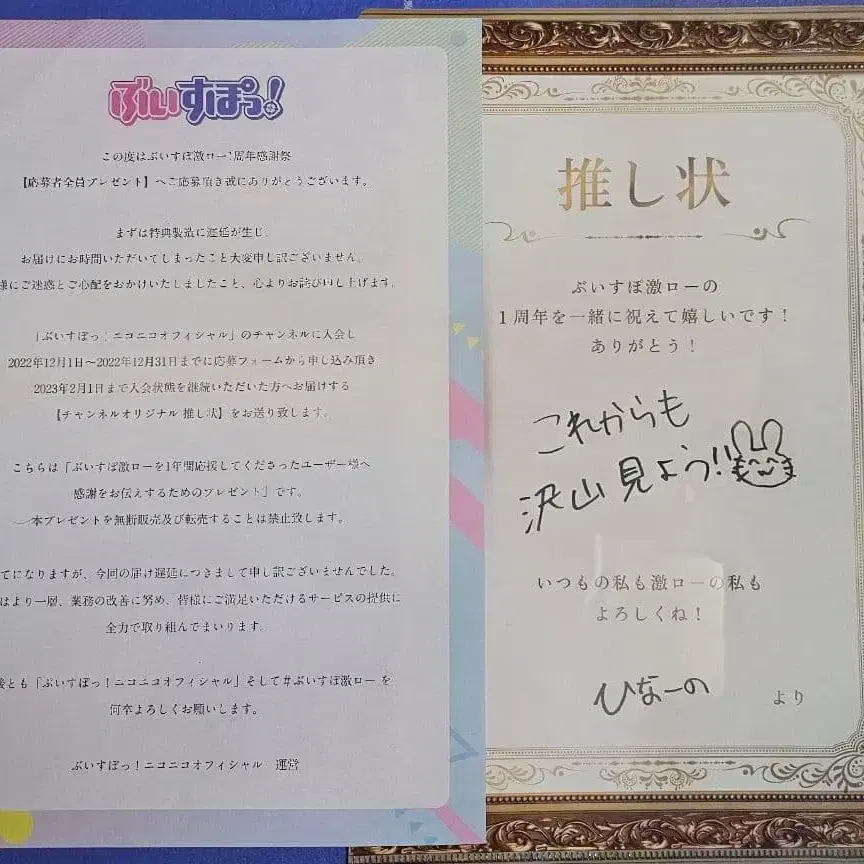 ぶいすぽっ!
この度はぶいすぽ激ロー1周年感謝祭
【応募者全員プレゼント】へご応募頂き誠にありがとうございます。
まずは特典製造に遅延が生じ、
お届けにお時間いただいてしまったこと大変申し訳ございません。
様にご迷惑とご心配をおかけいたしましたこと、心よりお詫び申し上げます。
「ぶいすぽっ!ニコニコオフィシャル」のチャンネルに入会し
2022年12月1日〜2022年12月31日までに応募フォームから申し込み頂き
2023年2月1日まで入会状態を継続いただいた方へお届けする
【チャンネルオリジナル 推し状】をお送り致します。
こちらは「ぶいすぽ激ローを1年間応援してくださったユーザー様へ
感謝をお伝えするためのプレゼント」です。
本プレゼントを無断販売及び転売することは禁止致します。
てになりますが、今回の届け遅延につきまして申し訳ございませんでした。
はより一層、業務の改善に努め、皆様にご満足いただけるサービスの提供に
全力で取り組んでまいります。
後とも「ぶいすぽっ!ニコニコオフィシャル」そして#ぶいすぽ激ロー を
何卒よろしくお願いします。
ぶいすぽっ!ニコニコオフィシャル 運営
推し状
ぶいすぽ激ローの
1周年を一緒に祝えて嬉しいです!
ありがとう!
これからも
沢山見よう!!
いつもの私も激ローの私も
よろしくね!
ひなーの
より